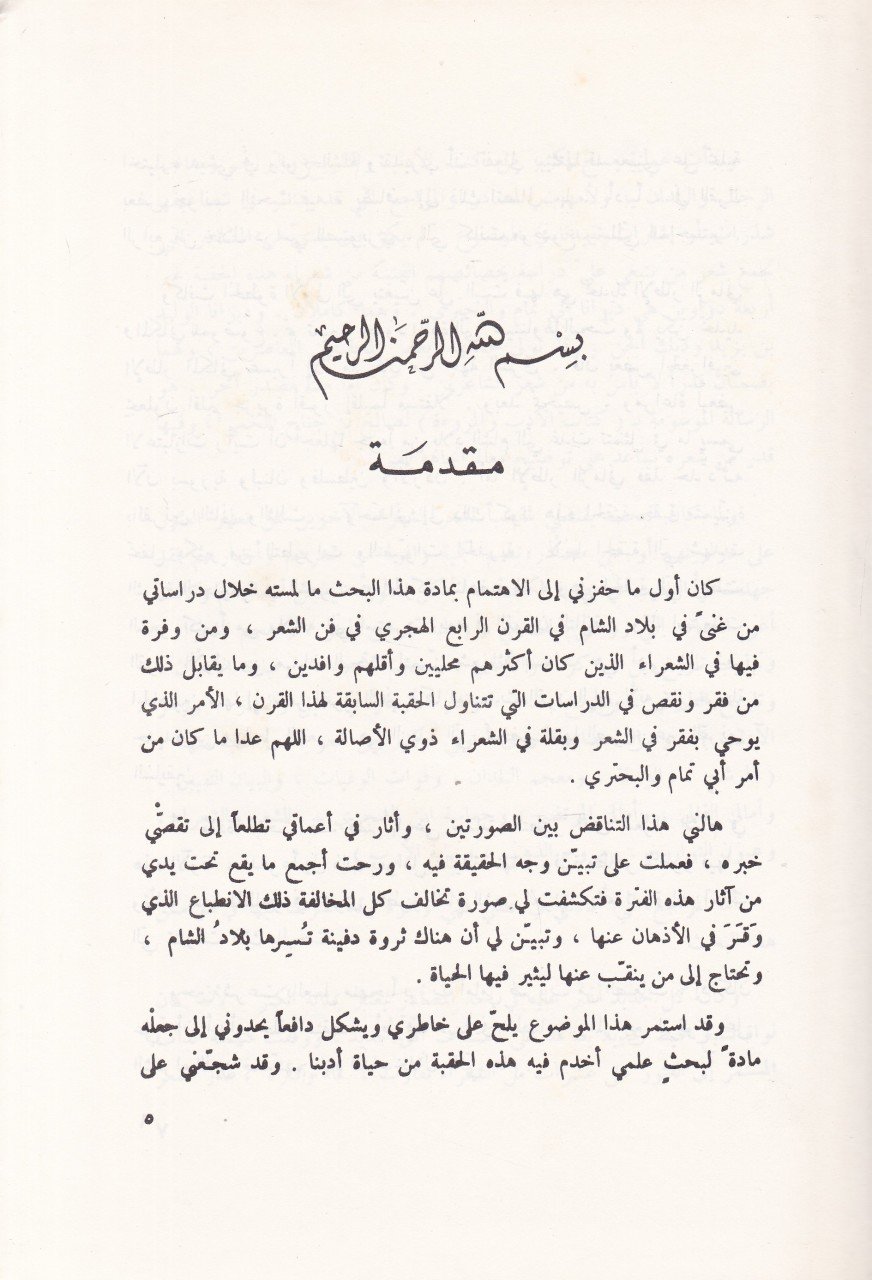 بسم الله الرحمن الرحيم
مقدمة
كان أول ما حفزني إلى الاهتمام بمادة هذا البحث ما لمسته خلال دراساتي
من غنىً في بلاد الشام في القرن الرابع الهجري في فن الشعر ، ومن وفرة
فيها في الشعراء الذين كان أكثرهم محليين وأقلهم وافدين ، وما يقابل ذلك
من فقر ونقص في الدراسات التي تتناول الحقبة السابقة لهذا القرن ، الأمر الذي
يوحي بفقر في الشعر وبقلة في الشعراء ذوي الأصالة ، اللهم عدا ما كان من
أمر أبي تمام والبحتري .
هالني هذا التناقض بين الصورتين ، وأثار في أعماقي تطلعاً إلى تقصّي
خبره ، فعملت على تبيّن وجه الحقيقة فيه ، ورحت أجمع ما يقع تحت يدي
من آثار هذه الفترة فتكشفت لي صورة تخالف كل المخالفة ذلك الانطباع الذي
وَقَرَ في الأذهان عنها ، وتبيّن لي أن هناك ثروة دفينة تُسِرها بلادُ الشام ،
وتحتاج إلى من ينقّب عنها ليثير فيها الحياة .
وقد استمر هذا الموضوع يلحّ على خاطري ويشكل دافعاً يحدوني إلى جعلْه
مادةً لبحثٍ علمي أخدم فيه هذه الحقبة من حياة أدبنا . وقد شجّعني على
٥